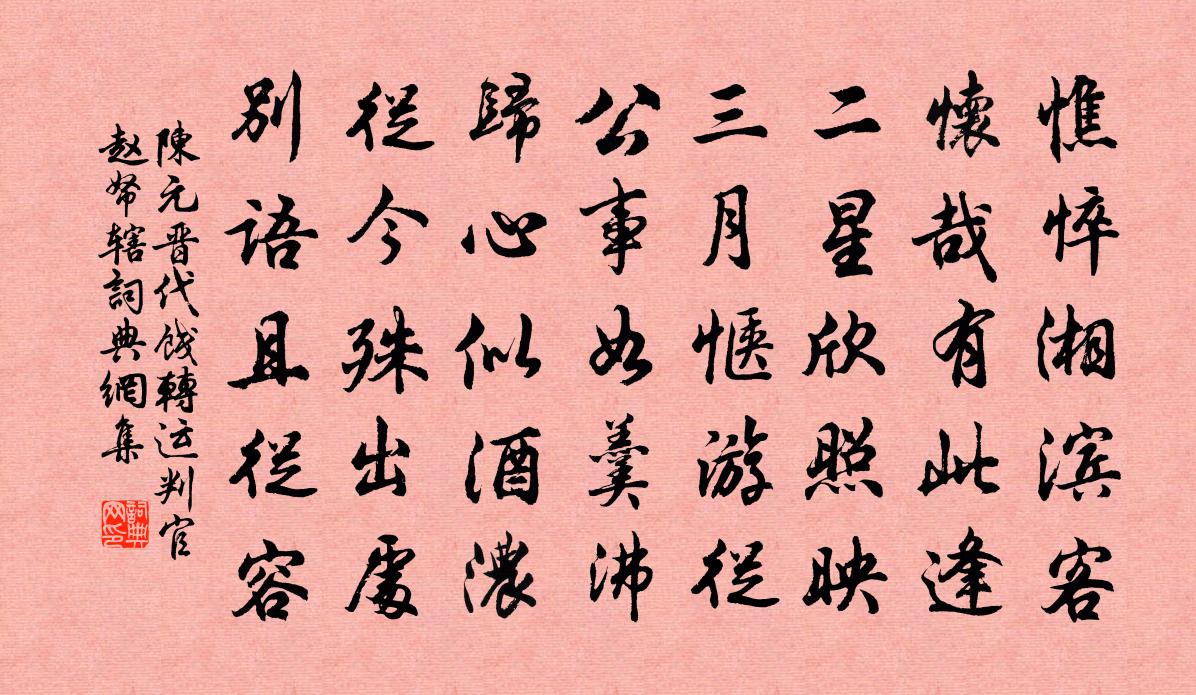 憔悴湘滨客
懷哉有此逢
二星欣照映
三月愜游從
公事如羹沸
歸心似酒濃
從今殊出處
別語且從容
陳元晋代餞轉运判官
赵帑辖詞典網集
詞典網印